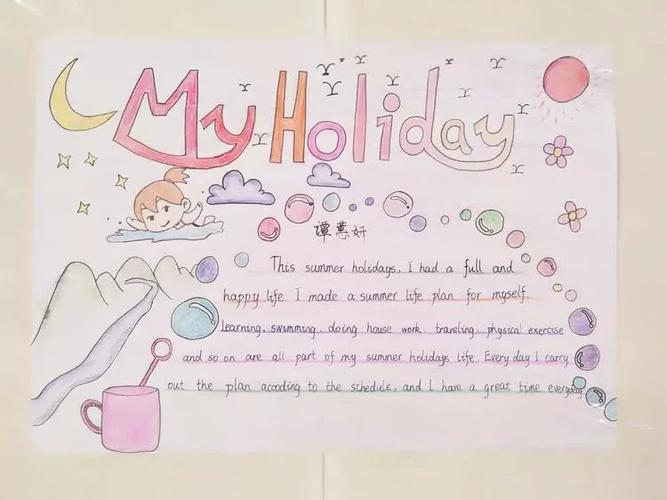 My Holiday
谭慧妍
This summer holidays, I had a full and
happy life I made a summer life plan for myself.
Learning, swimming, doing house work, traveling, physical exercise
and so on are all part of my summer holidays life. Every day I carry
out the plan acooding to the schedule, and I have a great time everyday.